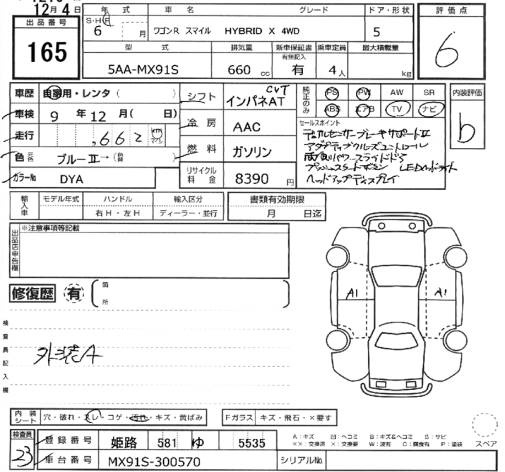 12月4日
出品番号
165
年式
S・H・R
6 月
車名
ワゴンR スマイル
グレード
HYBRID X 4WD
ドア・形状
5
評価点
6
型式
5AA-MX91S
排気量
660 cc
新車保証書
有無記入
有
乗車定員
4人
最大積載量
kg
車歴
自家用・レンタ( )
車検
9 年 12 月( 日)
走行
,662 km
色
ブルーⅡ→(
カラーNo
DYA
シフト
CVT
インパネAT
冷房
AAC
燃料
ガソリン
リサイクル料金
8390 円
純正のみ
PS PW AW SR
ABS エアB TV ナビ
セールスポイント
デュアルセンサーブレーキサポートⅡ
アダプティブクルーズコントロール
両側パワースライドドア
プッシュスタートボタン LEDヘッドライト
ヘッドアップディスプレイ
内装評価
b
輸入車
モデル年式
ハンドル
右H・左H
輸入区分
ディーラー・並行
書類有効期限
月 日迄
出品店申告欄
※注意事項等記載
修復歴
有
箇所
検査員記入欄
外装A
A1
A1
内装シート
穴・破れ・スレ・コゲ・汚れ・キズ・黄ばみ
Fガラス
キズ・飛石・×要す
検査員
23
登録番号
姫路 581 ゆ 5535
車台番号
MX91S-300570
シリアルNo.
A:キズ
B:キズ&ヘコミ
S:サビ
××:交換済
×:交換要
W:波
C:腐食有
P:塗装
スペア